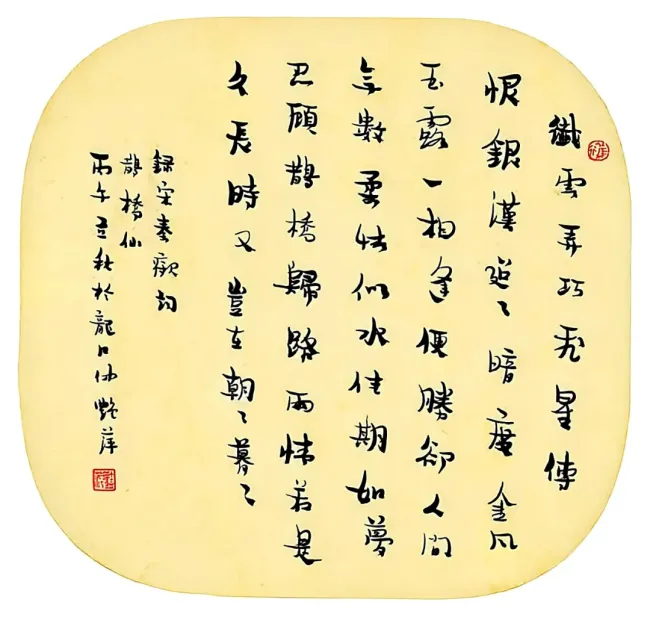 纖雲弄巧飛星傳
恨銀漢迢〻暗度金風
玉露一相逢便勝卻人間
無數柔情似水佳期如夢
忍顧鵲橋歸路兩情若是
久長時又豈在朝〻暮〻
録宋秦觀詞
鵲橋仙
丙午立秋於龍口仲艷萍